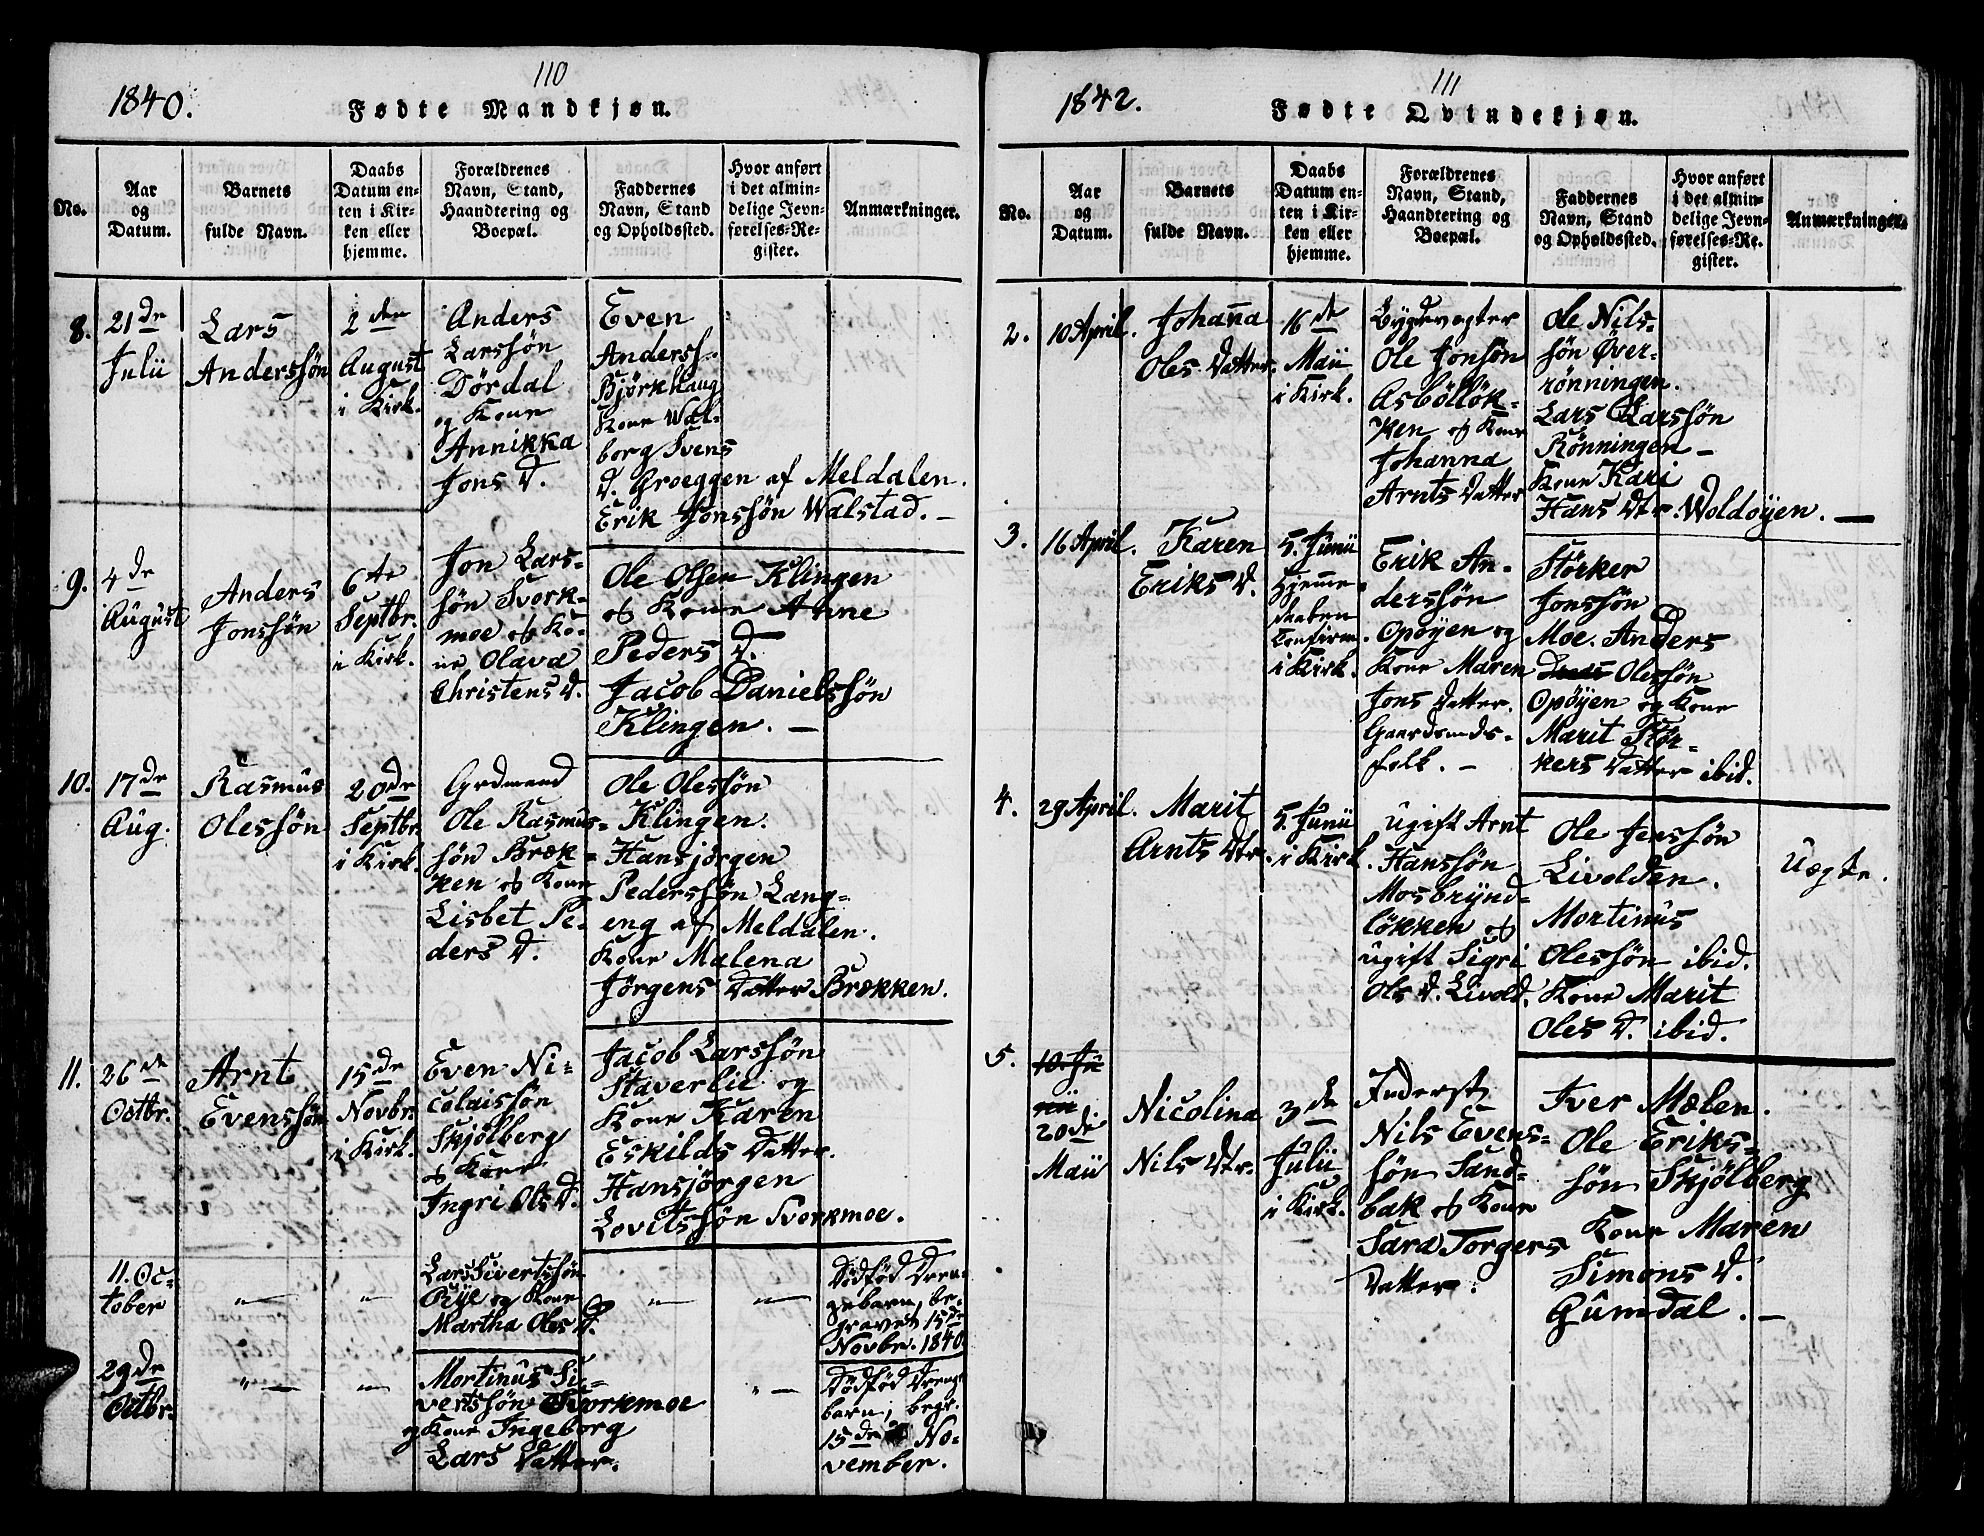 110
1840.
Fødte Mandkjøn.
No.
Aar
og
Datum.
Barnets
fulde Navn.
Daabs
Datum en-
ten i Kir-
ken eller
hjemme.
Forældrenes
Navn, Stand,
Haandtering og
Boepæl.
Faddernes
Navn, Stand
og Opholdssted.
Hvor anført
i det almin-
delige Jevn-
førelses-Re-
gister.
Anmærkninger.
8.
21de
Julii
Lars
Anderssøn
2den
August
i Kirk.
Anders
Larssøn
Dördal
og Kone
Annikka
Jons D.
Even
Anderss.
Björkhaug
Kone Wal-
borg Svens
D. Groeggen af Meldalen.
Erik Jonssøn Walstad. –
9.
4de
August
Anders
Jonssøn
6te
Septbr.
i Kirk.
Jon Lars-
søn Svork-
moe og Ko-
ne Olava
Christens D.
Ole Olsen Klingen
og Kone Anne
Peders D.
Jacob Danielssøn
Klingen. –
10.
17de
Aug.
Rasmus
Olessøn
20de
Septbr.
i Kirk.
Grdmand
Ole Rasmus-
søn Bræk-
ken og Kone
Lisbet Pe-
ders D.
Ole Olessøn
Klingen.
Hansjörgen
Pederssøn Lang-
eng af Meldalen.
Kone Malena
Jörgens Datter Brækken.
11.
26de
Octbr.
Arnt
Evenssøn
15de
Novbr.
i Kirk.
Even Ni-
colaissøn
Skjölberg
og Kone
Ingri Ols D.
Jacob Larssøn
Staverlie og
Kone Karen
Eskilds Datter.
Hansjörgen
Lovitssøn Svorkmoe.
11. Oc-
tober
–"–
"–
Lars Sivertssøn
Rye og Kone
Martha Oles D.
"–
"–
Dödföd Dren-
gebarn, be-
gravet 15de
Novbr. 1840
29de
Octbr.
"–
"–
Mortinus Si-
vertssøn Svorkmoe
og Kone Ingeborg
Lars Datter.
"–
Dödföd Drenge
barn, begr.
15de No-
vember.
111
1842.
Fødte Qvindekjøn.
No.
Aar
og
Datum.
Barnets
fulde Navn.
Daabs
Datum en-
ten i Kir-
ken eller
hjemme.
Forældrenes
Navn, Stand,
Haandtering og
Boepæl.
Faddernes
Navn, Stand
og Opholdssted.
Hvor anført
i det almin-
delige Jevn-
førelses-Re-
gister.
Anmærkninger.
2.
10 April.
Johanna
Oles Datter.
16de
Maii
i Kirk.
Bygdevogter
Ole Jonsøn
Asbölløk-
ken og Kone
Johanna
Arnts Datter
Ole Nils-
søn Øver-
rönningen.
Lars Larssøn
Rønningen –
Kone Kari
Hans Dtr. Woldøyen. –
3.
16 April.
Karen
Eriks D.
5. Junii
Hjemme-
daaben
Confirm.
i Kirk.
Erik An-
derssøn
Opöyen og
Kone Maren
Jons Datter.
Gaardmds-
folk. –
Störker
Jonssøn
Moe. Anders
Olessøn
Opöyen og Kone
Marit Stör-
kers Datter ibid.
4.
29 April.
Marit
Arnts Dtr.
5. Junii
i Kirk.
ugift Arnt
Hanssøn
Mosbrynd-
lökken og
ugift Sigri
Ols D. Livold.
Ole Jenssøn
Livolden.
Mortinus
Olessøn ibid.
Kone Marit
Oles D. ibid.
Uægte.
5.
10. Ju
nii
20de
Maii
Nicolina
Nils Dtr.
3de
Julii
i Kirk.
Inderst
Nils Evens-
søn Sand-
bak og Kone
Sara Torgers
Datter.
Iver Mælen.
Ole Eriks-
søn Skjölberg
Kone Maren
Simons D.
Gumdal. –